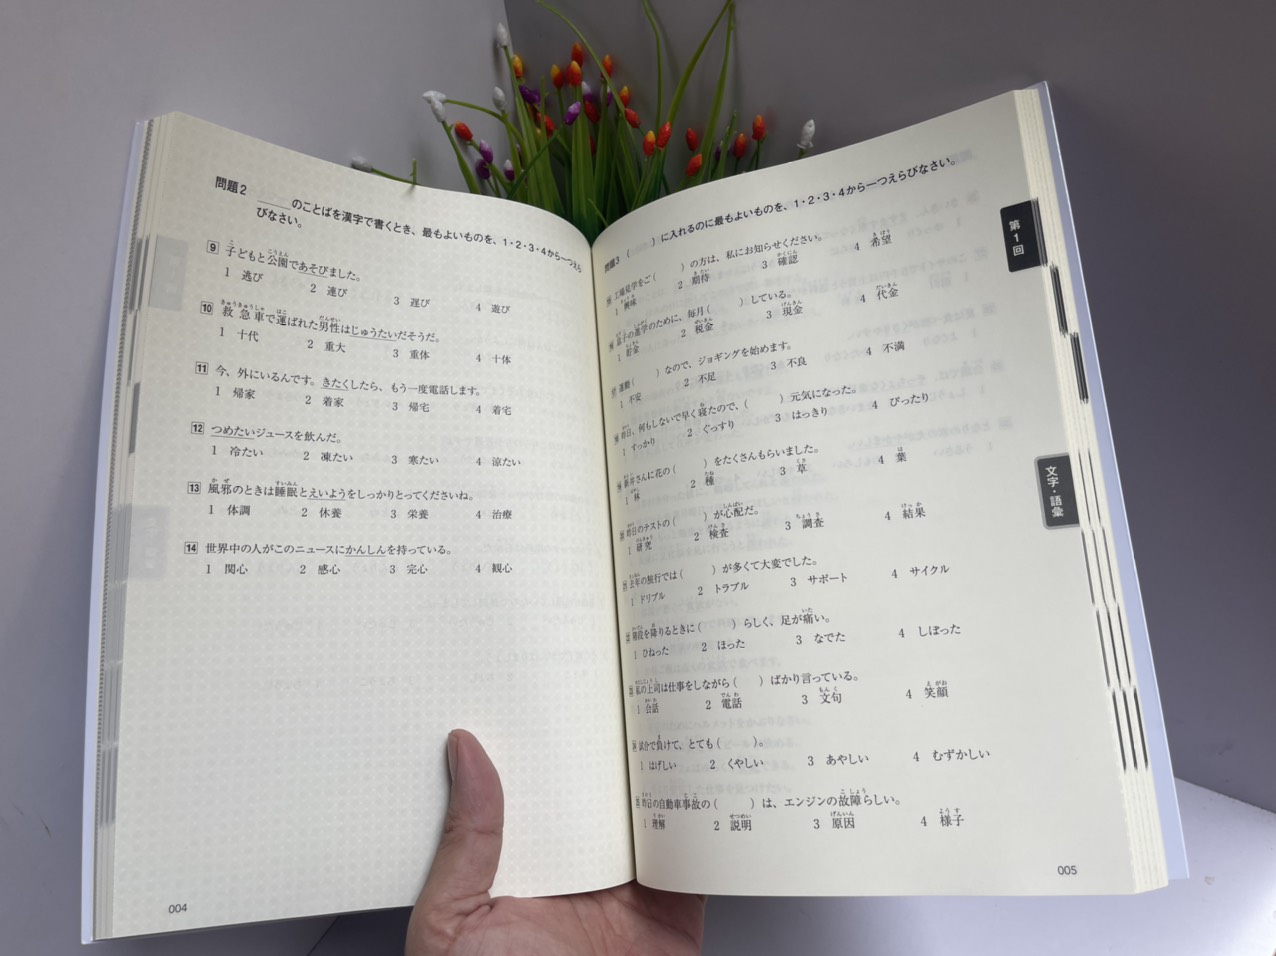 問題2 ＿＿＿のことばを漢字で書くとき、最もよいものを、1・2・3・4から一つえら
びなさい。
9 子どもと公園であそびました。
1 逃び 2 連び 3 遅び 4 遊び
10 救急車で運ばれた男性はじゅうたいだそうだ。
1 十代 2 重大 3 重体 4 十体
11 今、外にいるんです。きたくしたら、もう一度電話します。
1 帰家 2 着家 3 帰宅 4 着宅
12 つめたいジュースを飲んだ。
1 冷たい 2 凍たい 3 寒たい 4 涼たい
13 風邪のときは睡眠とえいようをしっかりとってくださいね。
1 体調 2 休養 3 栄養 4 治療
14 世界中の人がこのニュースにかんしんを持っている。
1 関心 2 感心 3 完心 4 観心
004
問題3 ( )に入れるのに最もよいものを、1・2・3・4から一つえらびなさい。
工場見学をご( )の方は、私にお知らせください。
1 興味 2 期待 3 確認 4 希望
息子の進学のために、毎月( )している。
1 貯金 2 税金 3 現金 4 代金
運動( )なので、ジョギングを始めます。
1 不安 2 不足 3 不良 4 不満
昨日、何もしないで早く寝たので、( )元気になった。
1 すっかり 2 ぐっすり 3 はっきり 4 ぴったり
新井さんに花の( )をたくさんもらいました。
1 林 2 種 3 草 4 葉
昨日のテストの( )が心配だ。
1 研究 2 検査 3 調査 4 結果
去年の旅行では( )が多くて大変でした。
1 ドリブル 2 トラブル 3 サポート 4 サイクル
階段を降りるときに( )らしく、足が痛い。
1 ひねった 2 ほった 3 なでた 4 しぼった
私の上司は仕事をしながら( )ばかり言っている。
1 会話 2 電話 3 文句 4 笑顔
試合で負けて、とても( )。
1 はげしい 2 くやしい 3 あやしい 4 むずかしい
昨日の自動車事故の( )は、エンジンの故障らしい。
1 理解 2 説明 3 原因 4 様子
005
第1回
文字・語彙